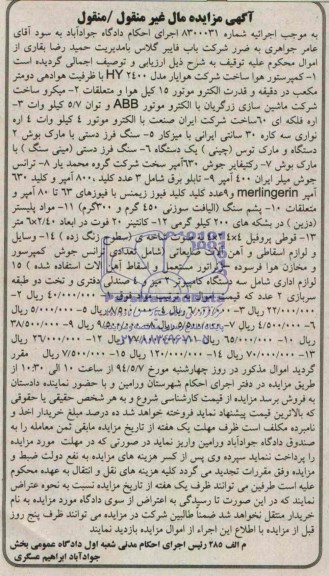 آگهی مزایده مال غیر منقول /منقول
به موجب اجرائیه شماره ۸۳۰۰۰۳۱ اجرای احکام دادگاه جوادآباد به سود آقای
عامر جواهری به ضرر شرکت باب فایبر گلاس بامدیریت حمید رضا بقاری از
اموال محکوم علیه توقیف به شرح ذیل ارزیابی و توصیف اجمالی گردیده است
۱- کمپرستور هوا ساخت شرکت هوایار مدل HY ۲۴۰۰ با ظرفیت هوادهی دومتر
مکعب در دقیقه و قدرت الکترو موتور ۱۵ کیل هوا و متعلقات ۲- میکرو ساخت
شرکت ماشین سازی زرگریان با الکترو موتور ABB و توان ۵/۷ کیلو وات ۳-
اره فلکه ای ۶۰ساخت شرکت ایران صنعت با الکترو موتور ۴ کیلو وات ۴ اره
نواری سه کاره ۳۰ سانتی ایرانی با میزکار ۵- سنگ فرز دستی با مارک بوش ۲
دستگاه و مارک توس (چینی ) یک دستگاه ۶- سنگ فرز دستی (مینی سنگ ) با
مارک بوش ۷- رکتیفایر جوش ۶۳۰آمپر سخت شرکت گروه محمد یار ۸- ترانس
جوش میلر ایران ۴۰۰ آمپر ۹- تابلو برق شامل ۳ عدد کلید ۸۰۰ آمپر و کلید ۶۳۰
آمپر merlingerin و۹عدد کلید کلید فیوز زیمنس با فیوزهای ۶۳ تا ۸۰ آمپر و
متعلقات ۱۰- پشم سنگ (الیافت سوزنی ۴۵۰ گرم و ۳۰۰گرم) ۱۱- مواد پلیستر
(دزین ) در بشکه های ۲۰۰ کیلو گرمی ۱۲- کانتینر ۲۰ فوت در ابعاد ۲/۴۰×۶ متر
۱۳- قوطی پروفیل ۴x۴ شاخه ی (سطوح زنگ زده ) ۱۴- وسایل
و لوازم اسقاطی و آهن آلات ضایعاتی شامل تعدادی ترانس جوش کمپرسور
و مخازن هوا فرسوده اسقاط آهن آلات استفاده شده ) ۱۵
لوازم اداری شامل سه دستگاه کامپیوتر ۳ میز و ۴ صندلی دفتری و تخت دو طبقه
سربازی ۲ عدد که قیمت ۴۰/۰۰۰/۰۰۰ ریال ۲-
ریال ۴- ۸/۵۰۰/۰۰۰ ریال ۵- ۵/۰۰۰/۰۰۰ ریال
۶- ۴/۵۰۰/۰۰۰ ریال ۷- ۳۸/۵۰۰/۰۰۰
ریال ۱۰- ۶۵/۰۰۰/۰۰۰ ریال ۲۶/۰۰۰/۰۰۰ ریال
۱۳- ۷۰/۰۰۰/۰۰۰ ریال ۱۴- ۱۲۰/۰۰۰/۰۰۰ ریال ۱۵- ۷/۵۰۰/۰۰۰ ریال مقرر
گردید اموال مذکور در روز چهارشنبه مورخ ۹۴/۵/۷ از ساعت ۱۰ الی ۱۰:۳۰ از
طریق مزایده در دفتر اجرای احکام شهرستان ورامین و با حضور نماینده دادستان
به فروش برسد مزایده از قیمت کارشناسی شروع و به هر شخص حقیقی یا حقوقی
که بالاترین قیمت پیشنهاد نماید فروخته خواهد شد ده درصد مبلغ خریدار اخذ و
نامبرده مکلف است ظرف مهلت یک هفته از تاریخ مزایده مابقی ثمن معامله را به
صندوق دادگاه جوادآباد ورامین واریز نماید در صورتی که در مهلت مورد مزایده
را پرداخت ننماید سپرده وی پس از کسر هزینه های مزایده به نفع دولت ضبط و
مزایده وفق مقررات تجدید می گردد کلیه هزینه های نقل و انتقال به عهده محکوم
علیه است طرفین می توانند ظرف یک هفته از تاریخ مزایده نسبت به نحوه اعتراض
نمایند که در این صورت تا رسیدگی به اعتراض از سوی دادگاه مورد مزایده به نام
خریدار منتقل نخواهد شد ضمنا طالبین شرکت در مزایده می توانند ظرف پنج روز
قبل از مزایده با اطلاع این اجراء از اموال مزایده بازدید نمایند
م الف ۲۸۵ رئیس اجرای احکام مدنی شعبه اول دادگاه عمومی بخش
جوادآباد ابراهیم عسگری